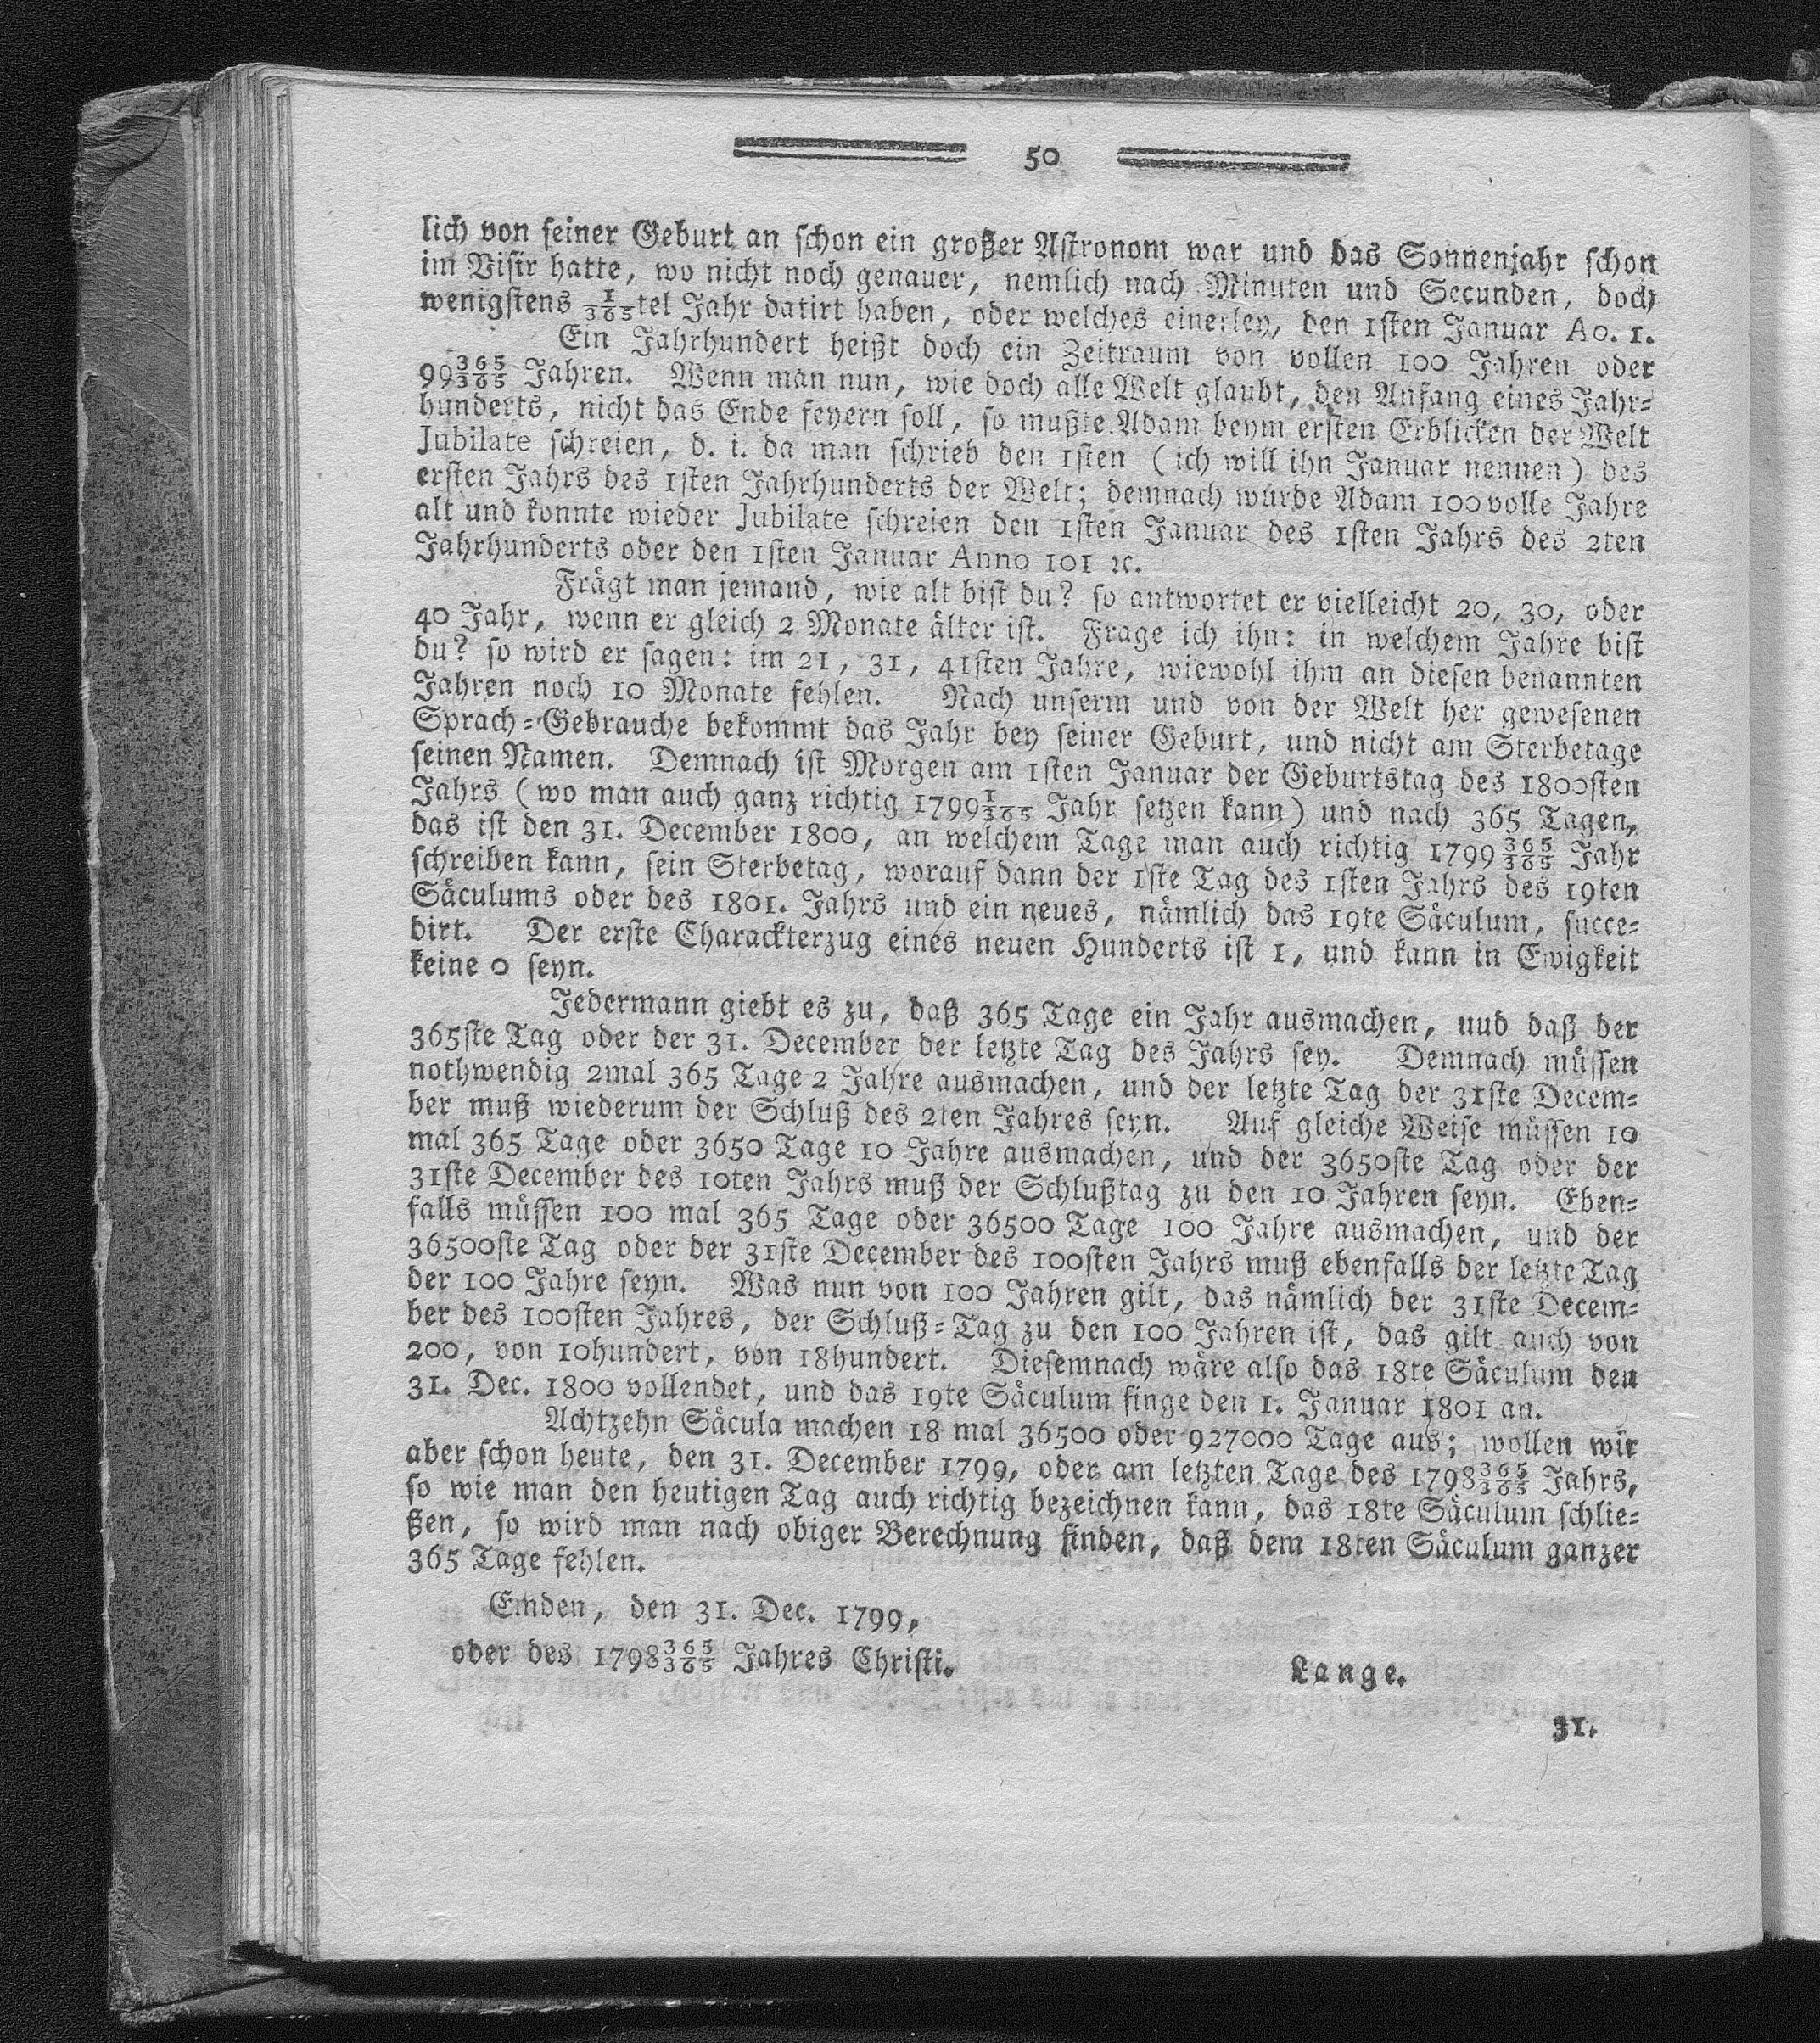 50
lich von seiner Geburt an schon ein großer Astronom war und das Sonnenjahr schon
im Visir hatte, wo nicht noch genauer, nemlich nach Minuten und Secunden, doch
wenigstens 1/365tel Jahr datirt haben, oder welches einerley, den 1sten Januar Ao. 1.
Ein Jahrhundert heißt doch ein Zeitraum von vollen 100 Jahren oder
99 365/365 Jahren. Wenn man nun, wie doch alle Welt glaubt, den Anfang eines Jahr-
hunderts, nicht das Ende feyern soll, so mußte Adam beym ersten Erblicken der Welt
Jubilate schreien, d. i. da man schrieb den 1sten (ich will ihn Januar nennen) des
ersten Jahrs des 1sten Jahrhunderts der Welt; demnach wurde Adam 100 volle Jahre
alt und konnte wieder Jubilate schreien den 1sten Januar des 1sten Jahrs des 2ten
Jahrhunderts oder den 1sten Januar Anno 101 ꝛc.
Frägt man jemand, wie alt bist du? so antwortet er vielleicht 20, 30, oder
40 Jahr, wenn er gleich 2 Monate älter ist. Frage ich ihn: in welchem Jahre bist
du? so wird er sagen: im 21, 31, 41sten Jahre, wiewohl ihm an diesen benannten
Jahren noch 10 Monate fehlen. Nach unserm und von der Welt her gewesenen
Sprach-Gebrauche bekommt das Jahr bey seiner Geburt, und nicht am Sterbetage
seinen Namen. Demnach ist Morgen am 1sten Januar der Geburtstag des 1800sten
Jahrs (wo man auch ganz richtig 1799 1/365 Jahr setzen kann) und nach 365 Tagen,
das ist den 31. December 1800, an welchem Tage man auch richtig 1799 365/365 Jahr
schreiben kann, sein Sterbetag, worauf dann der 1ste Tag des 1sten Jahrs des 19ten
Säculums oder des 1801. Jahrs und ein neues, nämlich das 19te Säculum, succe-
dirt. Der erste Charackterzug eines neuen Hunderts ist 1, und kann in Ewigkeit
keine 0 seyn.
Jedermann giebt es zu, daß 365 Tage ein Jahr ausmachen, uud daß der
365ste Tag oder der 31. December der letzte Tag des Jahrs sey. Demnach müssen
nothwendig 2mal 365 Tage 2 Jahre ausmachen, und der letzte Tag der 31ste Decem-
ber muß wiederum der Schluß des 2ten Jahres seyn. Auf gleiche Weise müssen 10
mal 365 Tage oder 3650 Tage 10 Jahre ausmachen, und der 3650ste Tag oder der
31ste December des 10ten Jahrs muß der Schlußtag zu den 10 Jahren seyn. Eben-
falls müssen 100 mal 365 Tage oder 36500 Tage 100 Jahre ausmachen, und der
36500ste Tag oder der 31ste December des 100sten Jahrs muß ebenfalls der letzte Tag
der 100 Jahre seyn. Was nun von 100 Jahren gilt, das nämlich der 31ste Decem-
ber des 100sten Jahres, der Schluß-Tag zu den 100 Jahren ist, das gilt auch von
200, von 10hundert, von 18hundert. Diesemnach wäre also das 18te Säculum den
31. Dec. 1800 vollendet, und das 19te Säculum finge den 1. Januar 1801 an.
Achtzehn Säcula machen 18 mal 36500 oder 927000 Tage aus; wollen wir
aber schon heute, den 31. December 1799, oder am letzten Tage des 1798 365/365 Jahrs,
so wie man den heutigen Tag auch richtig bezeichnen kann, das 18te Säculum schlie-
ßen, so wird man nach obiger Berechnung finden, daß dem 18ten Säculum ganzer
365 Tage fehlen.
Emden, den 31. Dec. 1799,
oder des 1798 365/365 Jahres Christi.
Lange.
31.